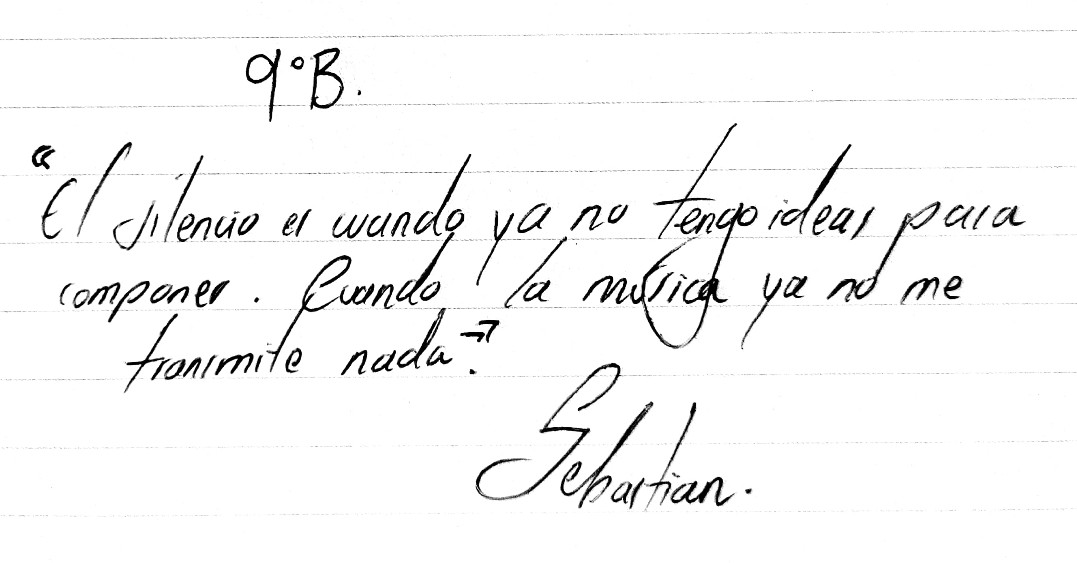 9°B.
"El silencio es cuando ya no tengo ideas para
componer. Cuando la música ya no me
transmite nada."
Sebastian.